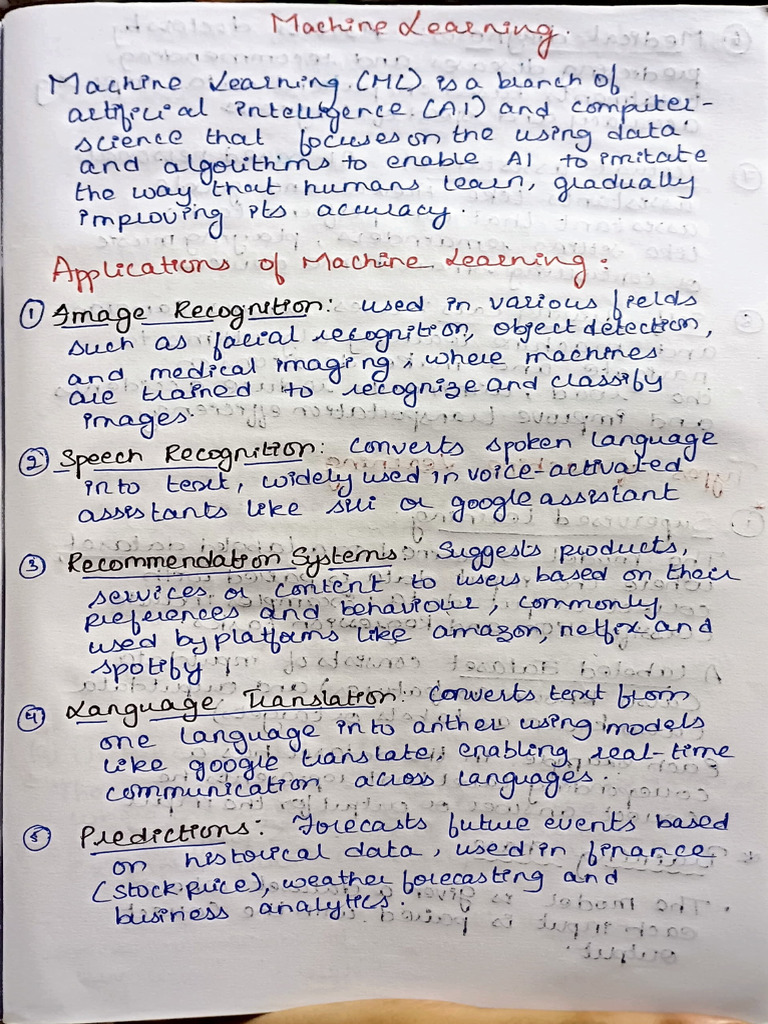 Machine Learning.
Machine Learning (ML) is a branch of
artificial intelligence (AI) and computer-
science that focuses on the using data
and algorithms to enable AI to imitate
the way that humans learn, gradually
improving its accuracy.
Applications of Machine Learning:
① Image Recognition: used in various fields
such as facial recognition, object detection,
and medical imaging, where machines
are trained to recognize and classify
images.
② Speech Recognition: converts spoken language
into text, widely used in voice-activated
assistants like siri or google assistant
③ Recommendation Systems: Suggests products,
services or content to users based on their
preferences and behaviour, commonly
used by platforms like amazon, netfix and
spotify
④ Language Translation: converts text from
one language into anther using models
like google translate, enabling real-time
communication across languages.
⑤ Predictions: Forecasts future events based
on historical data, used in finance
(stock price), weather forecasting and
business analytics.